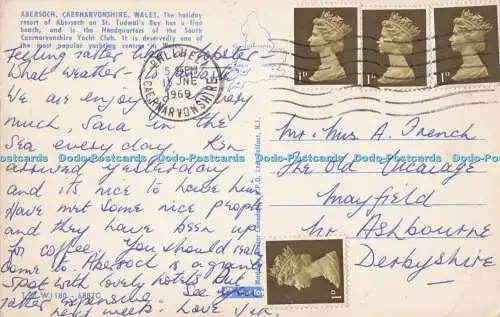 ABERSOCH, CAERNARVONSHIRE, WALES. The holiday
resort of Abersoch on St. Tudwal's Bay has a fine
beach, and is the Headquarters of the South
Caernarvonshire Yacht Club. It is deservedly one of
the most popular yachting centres in
Feeling rather like a lobster
What weather-
We are enjoying very
much, Sara in the
Sea every day. Ken
arrived yesterday
and its nice to have him
Have met some nice people
and they have been up
for coffee. You should really
come to Abersoch is a grand
Spot with lovely hotels but
rather expensive. See you
next week. Love
PWLLHELI
5 PM
JNE
1969
CAERNARVONSHIRE
1D
1D
1D
Mr. Mrs A. French
The Old Vicarage
Mayfield
Nr. Ashbourne
Derbyshire
1D
Dodo-Postcards Dodo-Postcards Dodo-Postcards Dodo-Postcards Dodo-Postcards Dodo-Postcards